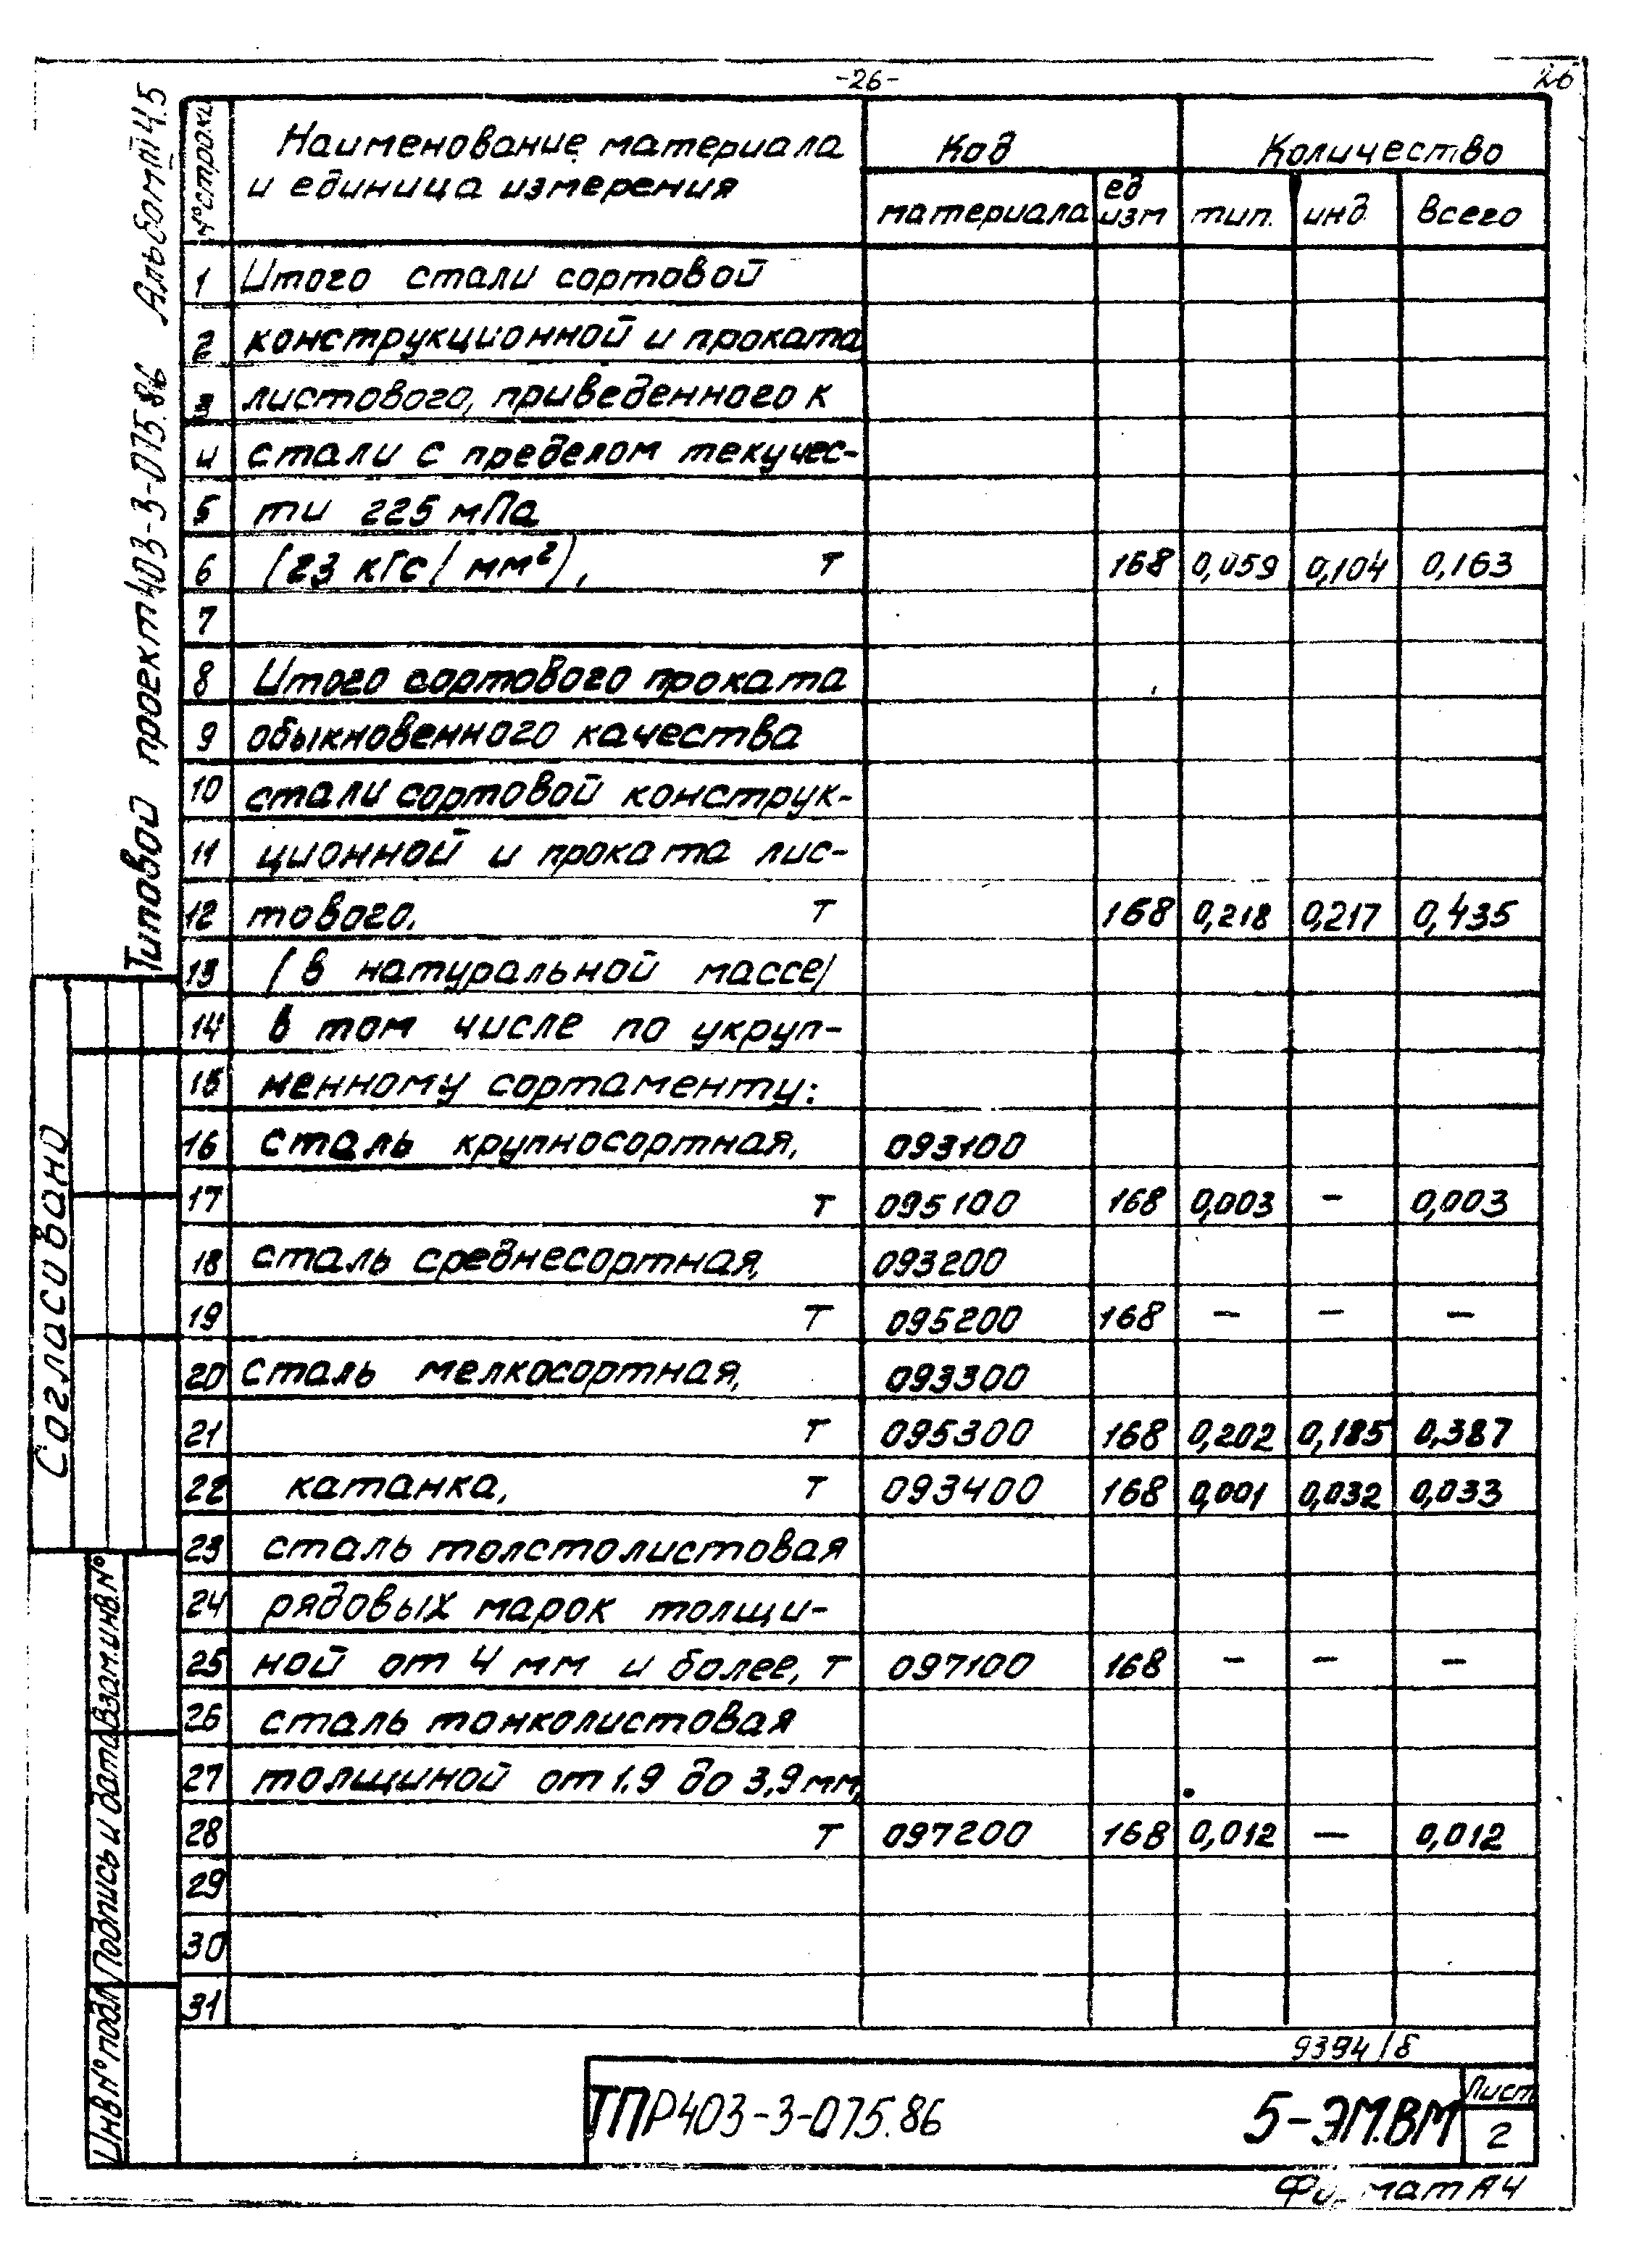 -26-
26
Типовой проект 403-3-075.86 Альбом 4.5
№ строки
Наименование материала
и единица измерения
Код
Количество
материала
ед
изм
тип.
инд.
всего
1 Итого стали сортовой
2 конструкционной и проката
3 листового, приведенного к
4 стали с пределом текучес-
5 ти 225 мПа
6 (23 кГс/мм²), т 168 0,059 0,104 0,163
7
8 Итого сортового проката
9 обыкновенного качества
10 стали сортовой конструк-
11 ционной и проката лис-
12 тового. т 168 0,218 0,217 0,435
13 /в натуральной массе/
14 в том числе по укруп-
15 ненному сортаменту:
16 сталь крупносортная, 093100
17 т 095100 168 0,003 – 0,003
18 сталь среднесортная, 093200
19 т 095200 168 – – –
20 сталь мелкосортная, 093300
21 т 095300 168 0,202 0,185 0,387
22 катанка, т 093400 168 0,001 0,032 0,033
23 сталь толстолистовая
24 рядовых марок толщи-
25 ной от 4 мм и более, т 097100 168 – – –
26 сталь тонколистовая
27 толщиной от 1.9 до 3,9 мм,
28 т 097200 168 0,012 – 0,012
29
30
31
Согласовано
Взам.инв.N°
Подпись и дата
Инв N° подл
9394/
ТПР403-3-075.86
5-ЭМ.ВМ
Лист
2
Формат А4